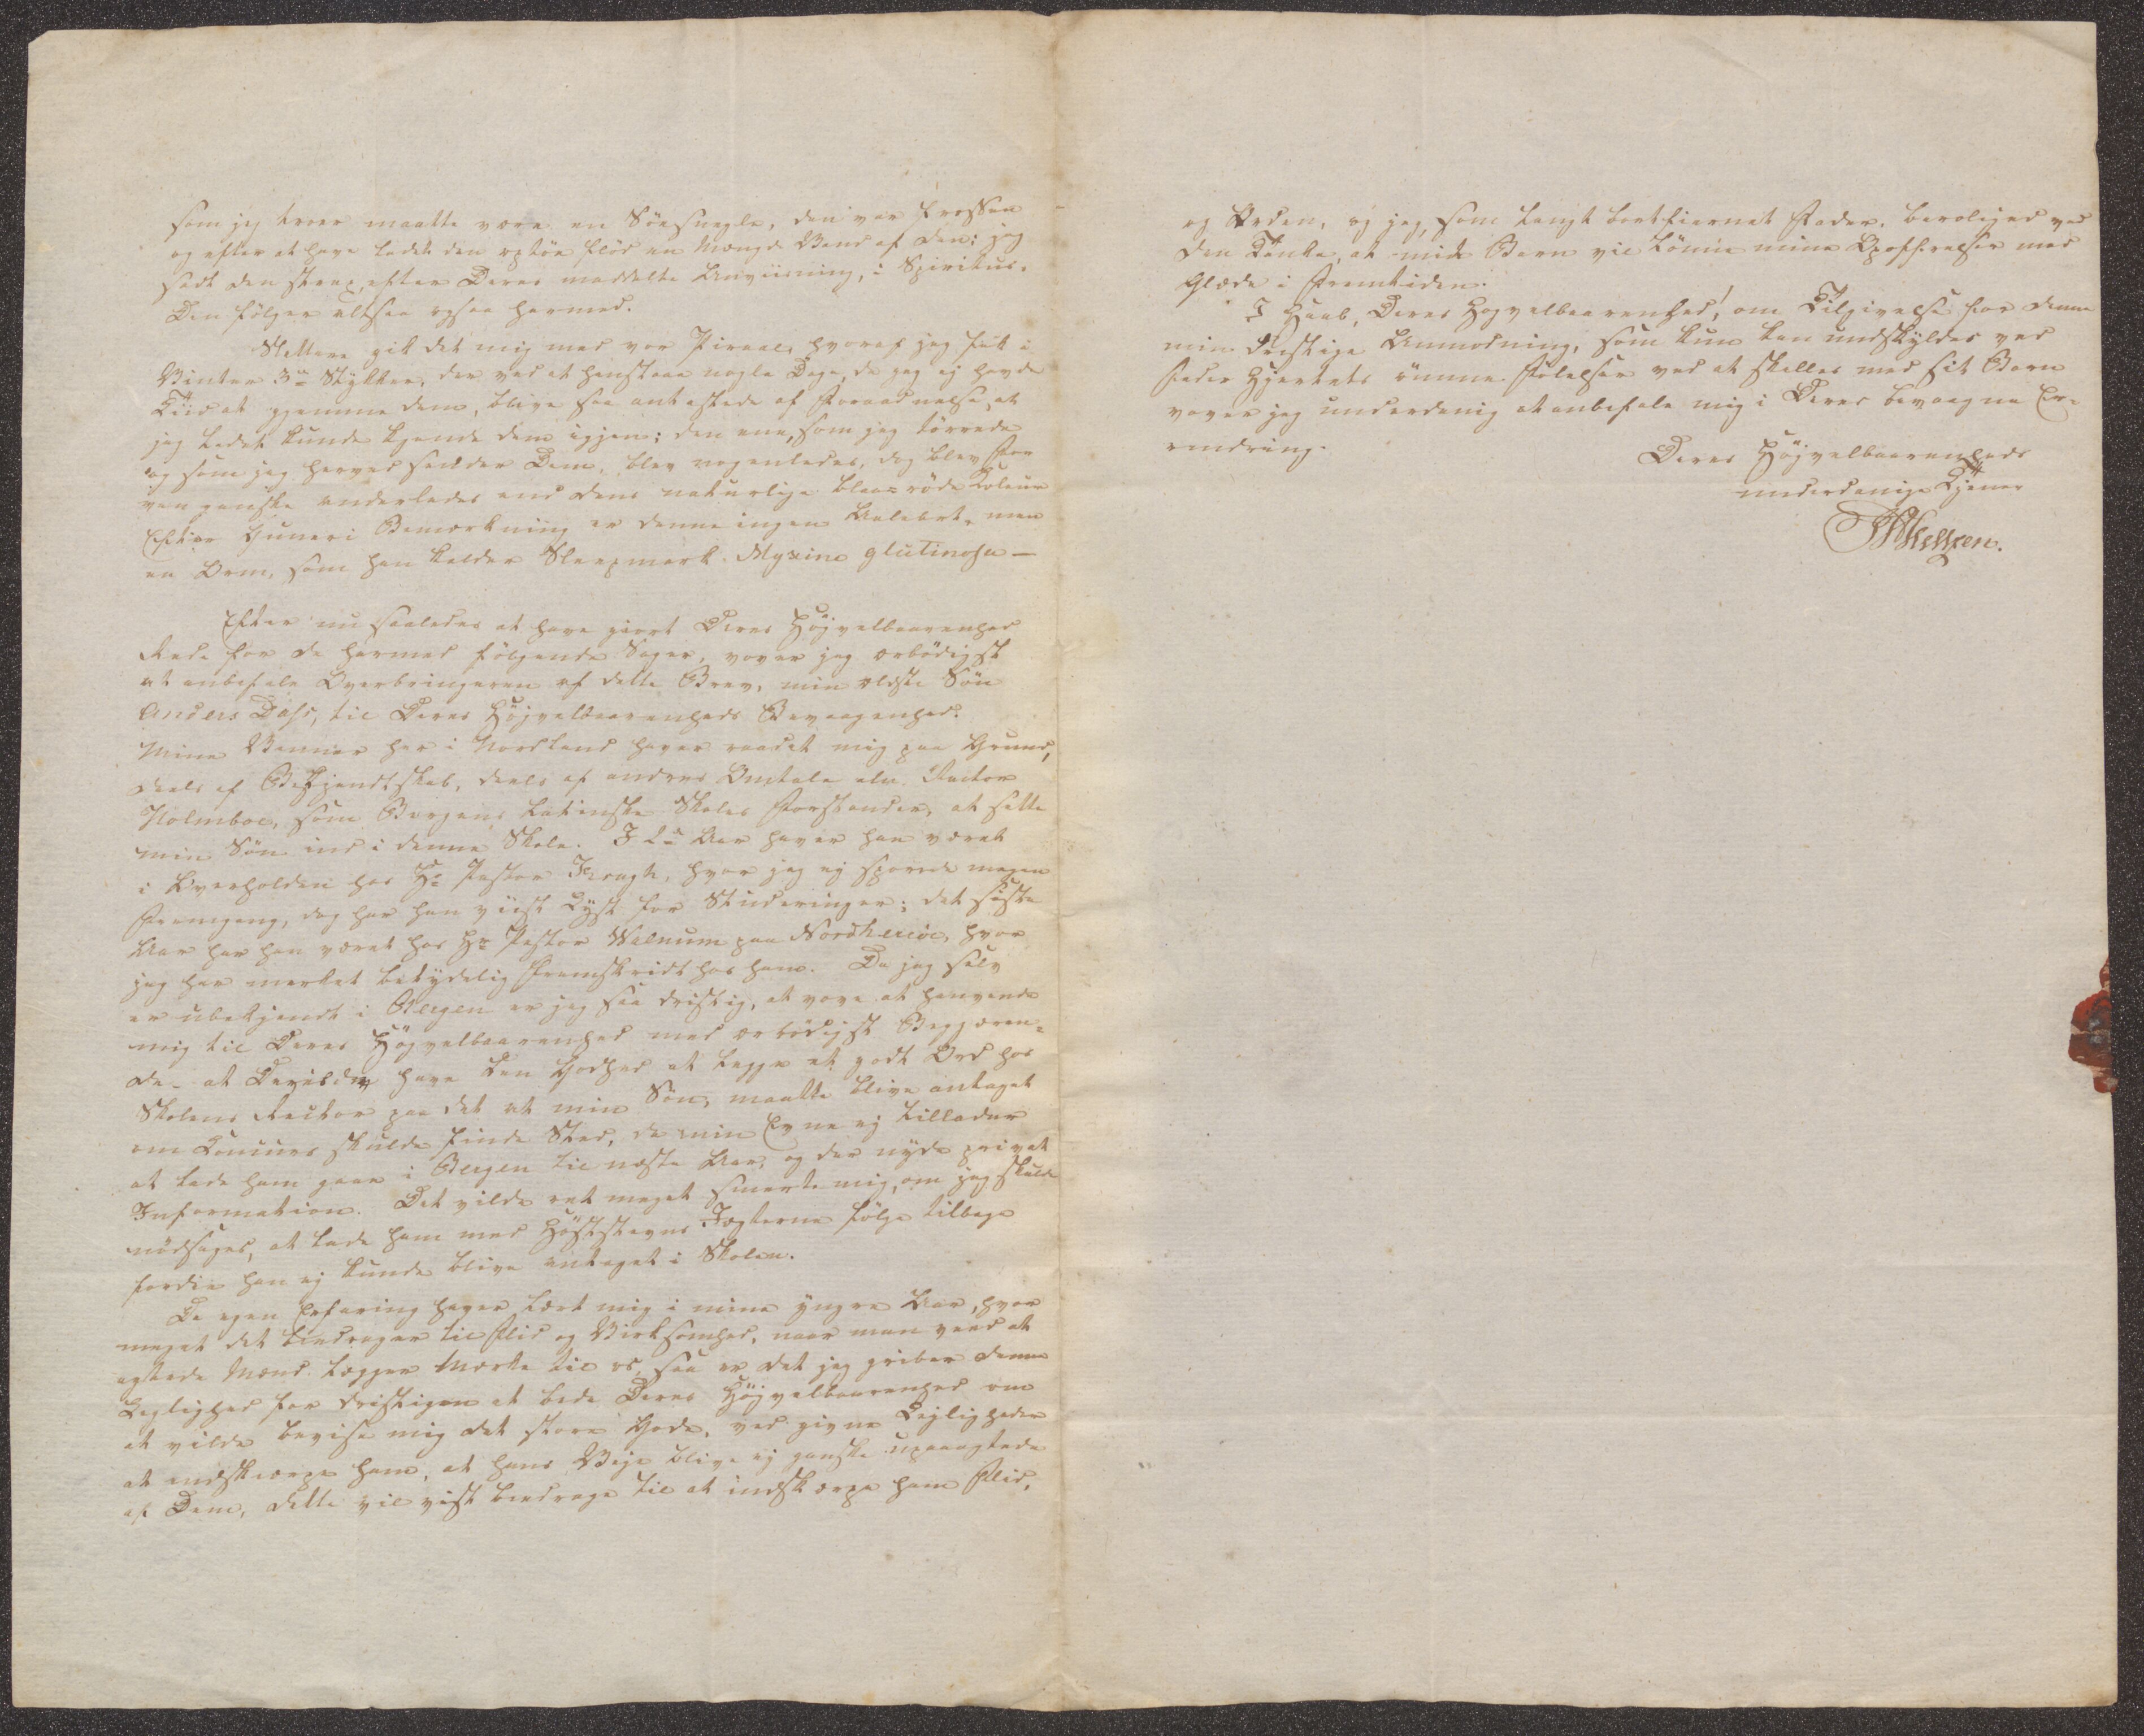 som jeg troer maatte være en Söesnegle, den var frossen
og efter at have ladet den optöe flöd en Mængde Vand af den; jeg
satt den strax, efter Deres meddelte Anviisning, i Spiritus.
Den fölger altsaa ogsaa hermed.
Slettere gik det mig med vor Piraal, hvoraf jeg fik i
Vinter 3de Stykker, der ved at henstaae nogle Dage, da jeg ej havde
Tiid at gjemme dem, blive saa antastede af Forraadnelse, at
jeg ladet kunde kjende dem igjen; den ene, som jeg törrede
og som jeg herved sender Dem, blev nogenledes, dog blev Far
ven ganske anderledes end dens naturlige blaa=röde Koleur
Efter Guneri Bemærkning er denne ingen Aaleart, men
en Orm, som han kalder Sleepmark. Myxine glutinosa —
Efter nu saaledes at have giort Deres Höjvelbaarenhed
Rede for de hermed fölgende Sager, vover jeg ærbödigst
at anbefale Overbringeren af dette Brev, min ældste Sön
Anders Dass, til Deres Höjvelbaarenheds Bevaagenhed.
Mine Venner her i Nordland haver raadet mig paa Grund,
deels af Bekjendtskab, deels af andres Omtale om Rector
Holmboe, som Bergens Latinske Skoles Forstander, at sætte
min Sön ind i denne Skole. I 2de Aar haver han været
i Overhalden hos Hr Pastor Krogh, hvor jeg ej sporede megen
Fremgang, dog har han viist Lyst for Studeringer; det sidste
Aar har han været hos Hr Pastor Walnum paa Nordheröe, hvor
jeg har mærket betydelig Fremskridt hos ham. Da jeg selv
er ubekjendt i Bergen er jeg saa dristig, at vove at henvende
mig til Deres Höjvelbaarenhed med ærbödigst Begjæren=
de at De vilde have den Godhed at lægge et godt Ord hos
Skolens Rector paa det at min Sön, maatte blive antaget
om Concurs skulde finde Sted, da min Evne ej tillader
at lade ham gaae i Bergen til næste Aar, og der nyde privat
Information. Det vilde ret meget smerte mig, om jeg skulde
nödsages, at lade ham med Höststevns Jægterne fölge tilbage
fordie han ej kunde blive antaget i Skolen.
Da egen Erfaring haver lært mig i mine yngre Aar, hvor
meget det bidrager til Flid og Virksomhed, naar man veed at
agtede Mænd lægger Mærke til os, saa er det jeg griber denne
Leglighed for dristigen at bede Deres Höjvelbaarenhed om
at vilde bevise mig det store Gode, ved givne Lejligheder
at indskiærpe ham, at hans Veje blive ej ganske upaaagtede
af Dem, dette vil vist bidrage til at indskærpe ham Flid,
og Orden, og jeg, som langt bortfiernet Fader, beroliges ved
den Tanke, at mit Barn vil lönne mine Opoffrelser med
Glæde i Fremtiden.
I Haab, Deres Höjvelbaarenhed! om Tilgivelse for denne
min dristige Anmodning, som kun kan undskyldes ved
Fader Hjertets ömme Fölelser ved at skilles med sit Barn
vover jeg underdanig at anbefale mig i Deres bevaagne Er=
rindring.
Deres Höjvelbaarenheds
underdanige Tjener